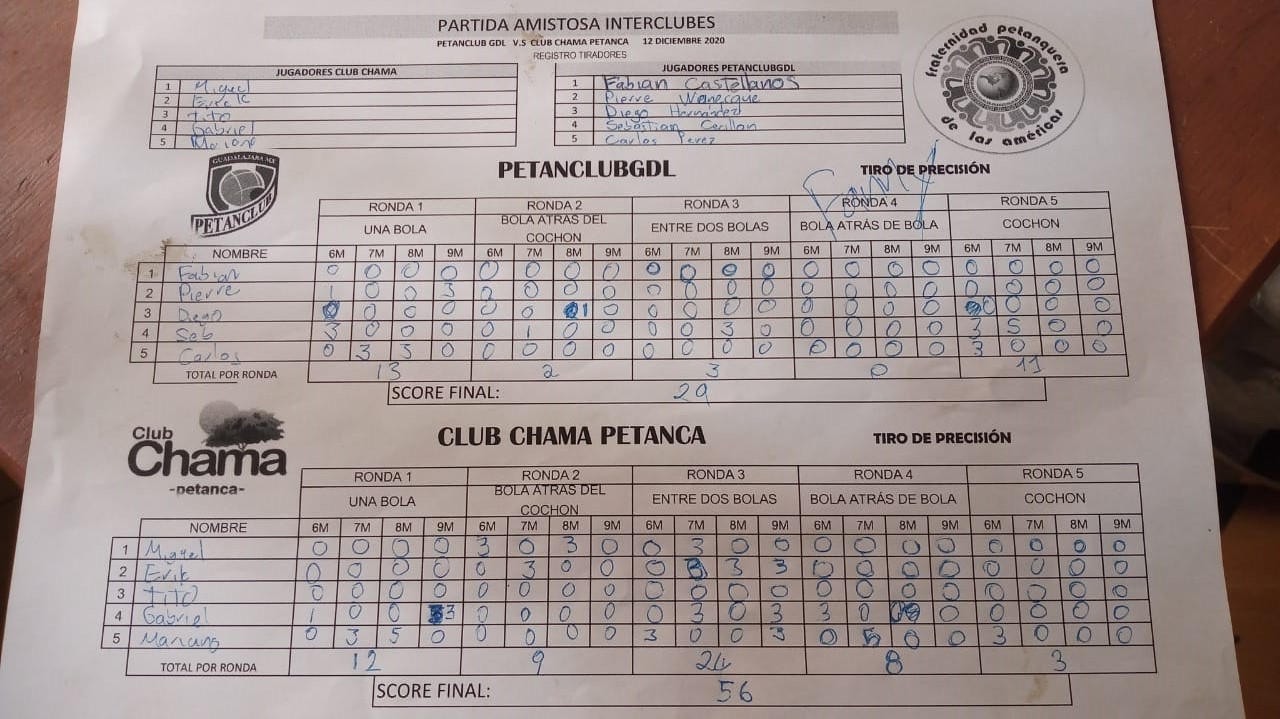 PARTIDA AMISTOSA INTERCLUBES
PETANCLUB GDL V.S CLUB CHAMA PETANCA 12 DICIEMBRE 2020
REGISTRO TIRADORES
JUGADORES CLUB CHAMA
1 Miguel
2 Erick
3 Tito
4 Gabriel
5
JUGADORES PETANCLUBGDL
1 Fabian Castellanos
2 Pierre
3 Diego Hernández
4 Sebastian
5 Carlos Perez
fraternidad petanquera
de las américas
GUADALAJARA MX
PETANCLUB
PETANCLUBGDL
TIRO DE PRECISIÓN
RONDA 1 RONDA 2 RONDA 3 RONDA 4 RONDA 5
UNA BOLA BOLA ATRÁS DEL COCHON ENTRE DOS BOLAS BOLA ATRÁS DE BOLA COCHON
NOMBRE 6M 7M 8M 9M 6M 7M 8M 9M 6M 7M 8M 9M 6M 7M 8M 9M 6M 7M 8M 9M
1 Fabian 0 0 0 0 0 0 0 0 0 0 0 0 0 0 0 0 0 0 0 0
2 Pierre 1 0 0 3 0 0 0 0 0 0 0 0 0 0 0 0 0 0 0 0
3 Diego 0 0 0 0 0 0 1 0 0 0 0 0 0 0 0 0 0 0 0 0
4 Seb 3 0 0 0 0 1 0 0 0 0 3 0 0 0 0 0 3 5 0 0
5 Carlos 0 3 3 0 0 0 0 0 0 0 0 0 0 0 0 0 3 0 0 0
TOTAL POR RONDA 13 2 3 0 11
SCORE FINAL: 29
Club
Chama
-petanca-
CLUB CHAMA PETANCA
TIRO DE PRECISIÓN
RONDA 1 RONDA 2 RONDA 3 RONDA 4 RONDA 5
UNA BOLA BOLA ATRÁS DEL COCHON ENTRE DOS BOLAS BOLA ATRÁS DE BOLA COCHON
NOMBRE 6M 7M 8M 9M 6M 7M 8M 9M 6M 7M 8M 9M 6M 7M 8M 9M 6M 7M 8M 9M
1 Miguel 0 0 0 0 3 0 3 0 0 3 0 0 0 0 0 0 0 0 0 0
2 Erik 0 0 0 0 0 3 0 0 0 3 3 3 0 0 0 0 0 0 0 0
3 Tito 0 0 0 0 0 0 0 0 0 0 0 0 0 0 0 0 0 0 0 0
4 Gabriel 1 0 0 3 0 0 0 0 0 3 0 3 3 0 0 0 0 0 0
5 Mariano 0 3 5 0 0 0 0 0 3 0 0 3 0 5 0 0 3 0 0 0
TOTAL POR RONDA 12 9 24 8 3
SCORE FINAL: 56